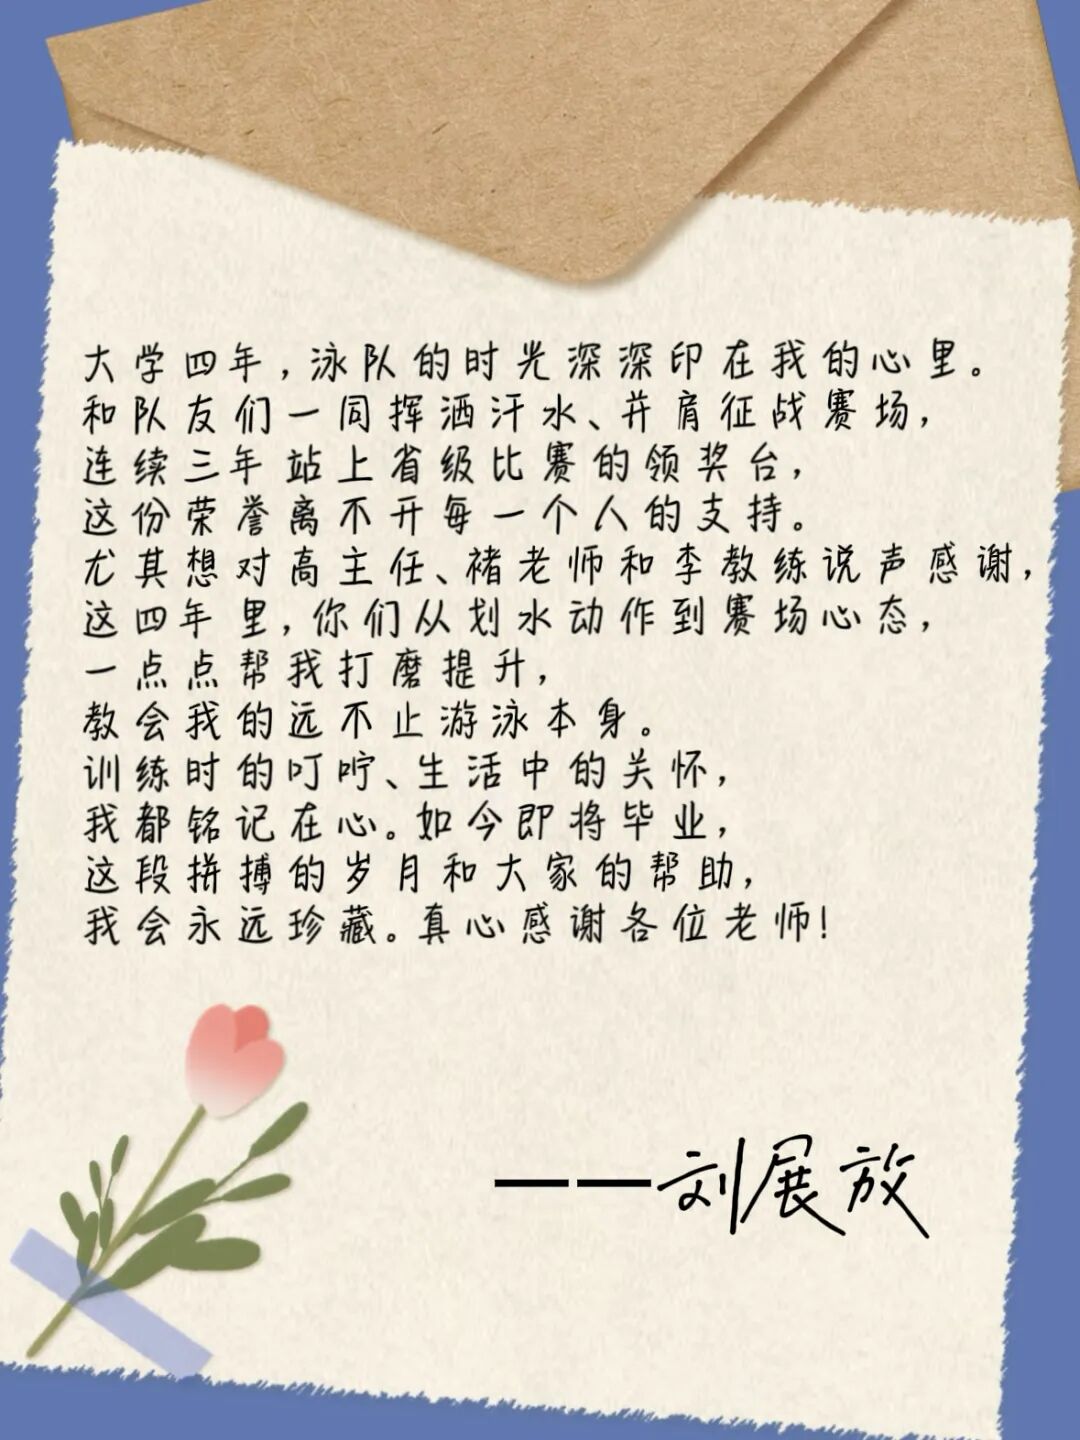 大学四年,泳队的时光深深印在我的心里。
和队友们一同挥洒汗水、并肩征战赛场,
连续三年站上省级比赛的领奖台,
这份荣誉离不开每一个人的支持。
尤其想对高主任、褚老师和李教练说声感谢,
这四年里,你们从划水动作到赛场心态,
一点点帮我打磨提升,
教会我的远不止游泳本身。
训练时的叮咛、生活中的关怀,
我都铭记在心。如今即将毕业,
这段拼搏的岁月和大家的帮助,
我会永远珍藏。真心感谢各位老师!
——刘展放